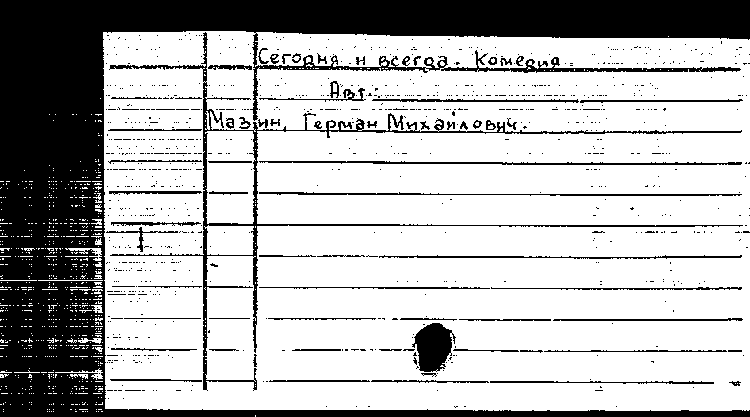 Сегодня и всегда. Комедия.
Авт.:
Мазин, Герман Михайлович.